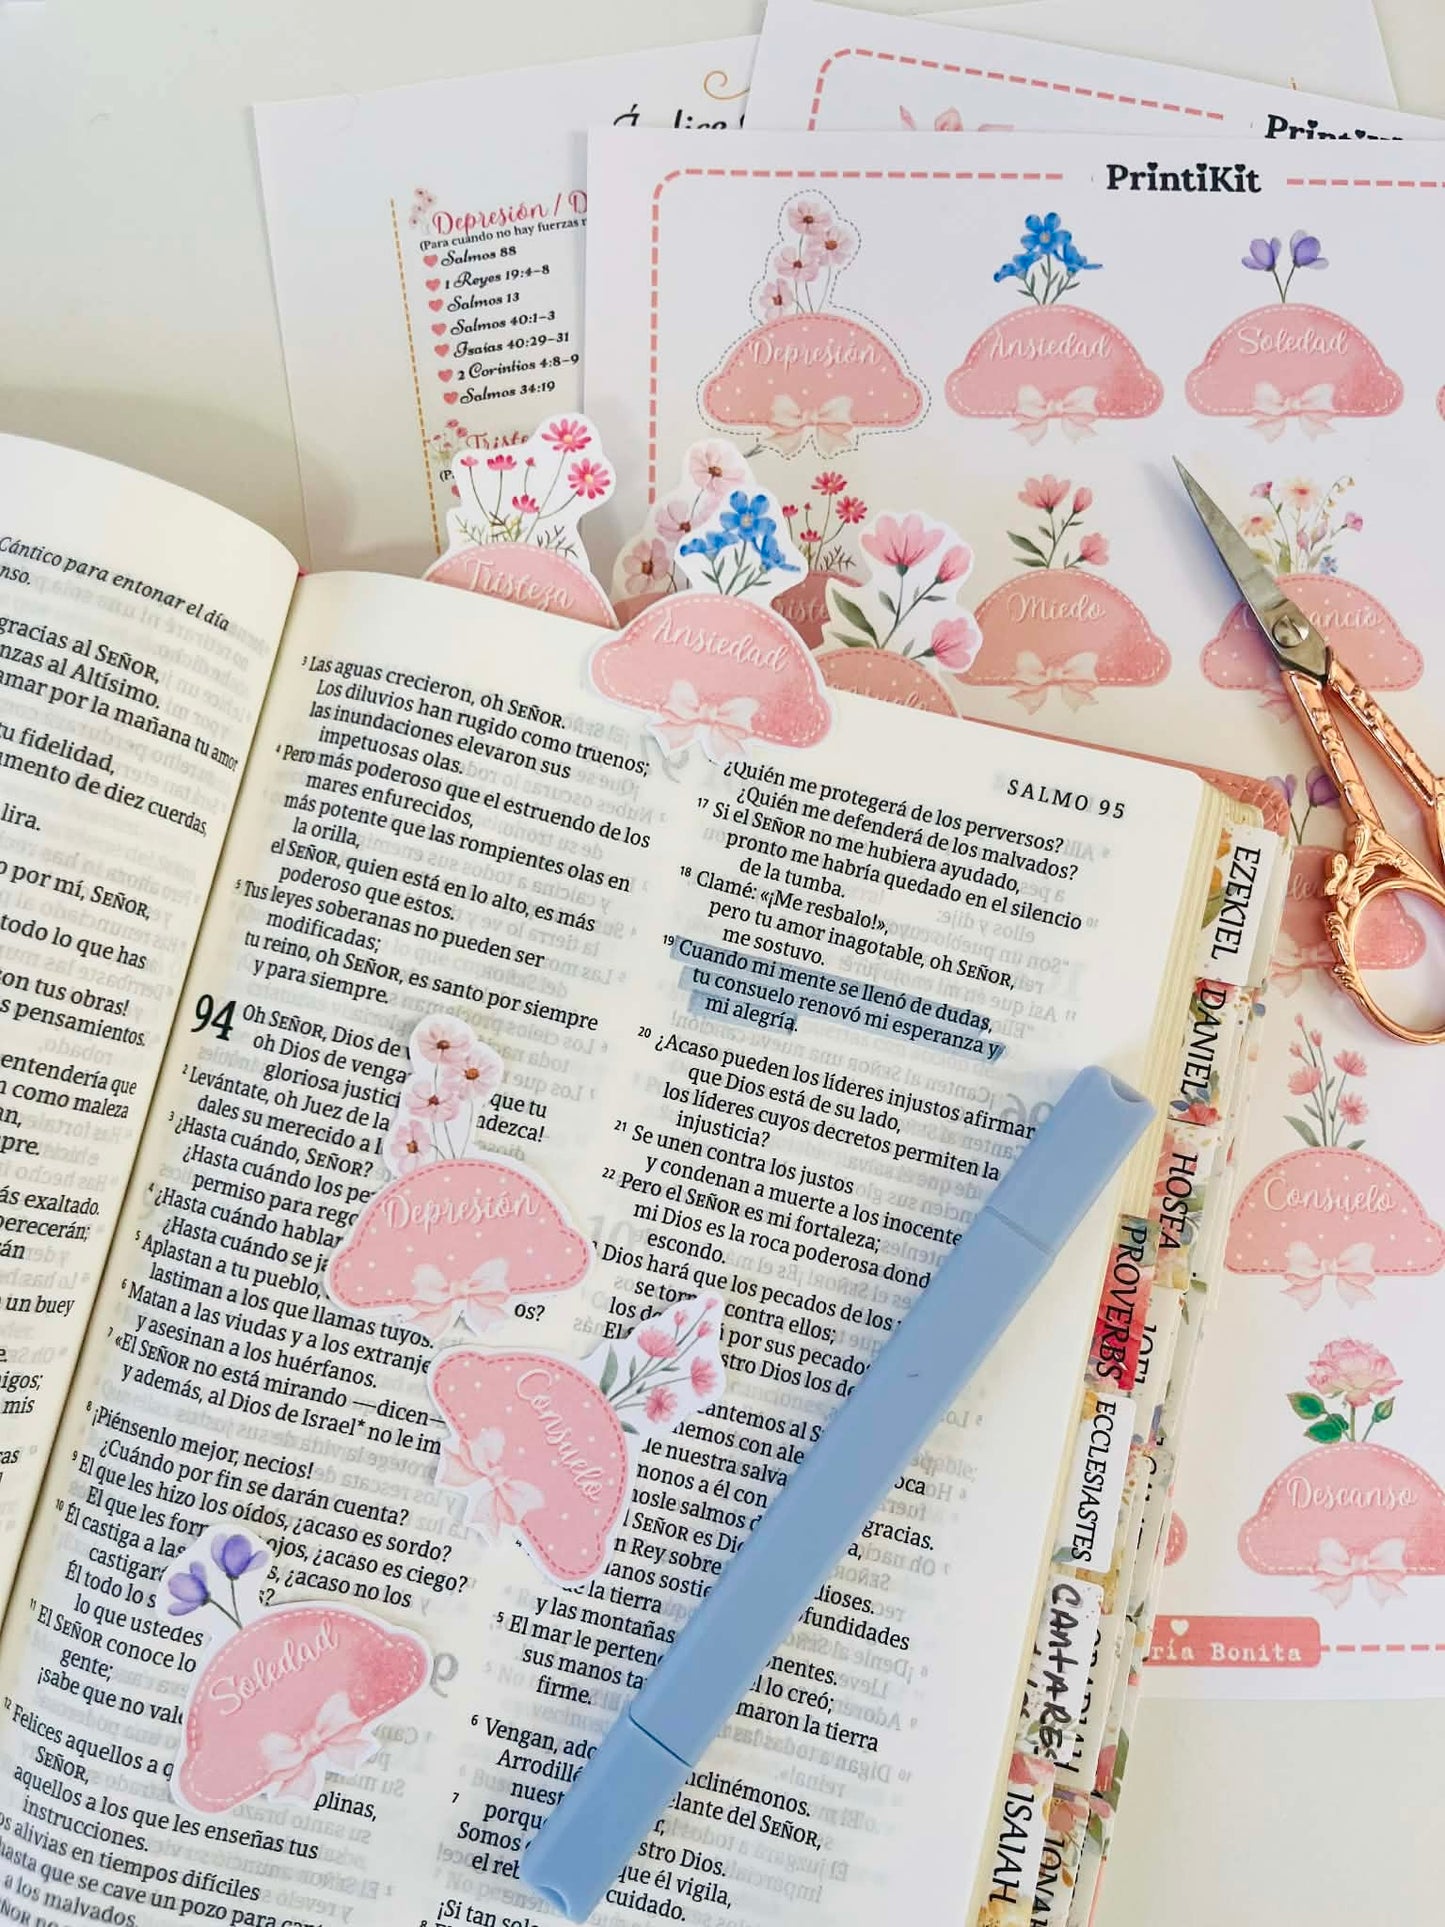 PrintiKit
PrintiKit
Depresión / D
(Para cuando no hay fuerzas
Salmos 88
1 Reyes 19:4-8
Salmos 13
Salmos 40:1-3
Isaías 40:29-31
2 Corintios 4:8-9
Salmos 34:19
Depresión
Ansiedad
Soledad
Miedo
Consuelo
Descanso
ría Bonita
Tristeza
Ansiedad
Cántico para entonar el día
nso.
gracias al SEÑOR,
nzas al Altísimo.
amar por la mañana tu amor
tu fidelidad,
mento de diez cuerdas,
lira.
o por mí, SEÑOR,
todo lo que has
on tus obras!
s pensamientos.
entendería que
n como maleza
an,
pre.
ás exaltado.
perecerán;
rán
un buey
e.
igos;
mis
3 Las aguas crecieron, oh SEÑOR.
Los diluvios han rugido como truenos;
las inundaciones elevaron sus
impetuosas olas.
4 Pero más poderoso que el estruendo de los
mares enfurecidos,
más potente que las rompientes olas en
la orilla,
el SEÑOR, quien está en lo alto, es más
poderoso que estos.
5 Tus leyes soberanas no pueden ser
modificadas;
tu reino, oh SEÑOR, es santo por siempre
y para siempre.
94 Oh SEÑOR, Dios de
oh Dios de venga
gloriosa justici que tu
ndezca!
2 Levántate, oh Juez de la
dales su merecido a l
3 ¿Hasta cuándo, SEÑOR?
¿Hasta cuándo los pe
permiso para rego
4 ¿Hasta cuándo hablar
¿Hasta cuándo se ja
5 Aplastan a tu pueblo,
lastiman a los que llamas tuyos.
os?
6 Matan a las viudas y a los extranje
y asesinan a los huérfanos.
7 «El SEÑOR no está mirando —dicen—
y además, al Dios de Israel* no le im
8 ¡Piénsenlo mejor, necios!
¿Cuándo por fin se darán cuenta?
9 El que les hizo los oídos, ¿acaso es sordo?
El que les for ojos, ¿acaso es ciego?
10 Él castiga a las s, ¿acaso no los
castigar s?
Él todo lo s
lo que ustedes
11 El SEÑOR conoce lo
gente;
¡sabe que no val
12 Felices aquellos a q
SEÑOR,
plinas,
aquellos a los que les enseñas tus
instrucciones.
os alivias en tiempos difíciles
hasta que se cave un pozo para
a los malvados.
Depresión
Consuelo
Soledad
SALMO 95
¿Quién me protegerá de los perversos?
¿Quién me defenderá de los malvados?
17 Si el SEÑOR no me hubiera ayudado,
pronto me habría quedado en el silencio
de la tumba.
18 Clamé: «¡Me resbalo!»,
pero tu amor inagotable, oh SEÑOR,
me sostuvo.
19 Cuando mi mente se llenó de dudas,
tu consuelo renovó mi esperanza y
mi alegría.
20 ¿Acaso pueden los líderes injustos afirmar
que Dios está de su lado,
los líderes cuyos decretos permiten la
injusticia?
21 Se unen contra los justos
y condenan a muerte a los inocente
22 Pero el SEÑOR es mi fortaleza;
mi Dios es la roca poderosa dond
escondo.
Dios hará que los pecados de los
se tor contra ellos;
los de á por sus pecado
El stro Dios los de
antemos al S
emos con ale
e nuestra salva oca
monos a él con gracias.
nosle salmos d
l SEÑOR es Dio a,
n Rey sobre dioses.
anos sostie ofundidades
e la tierra
y las montañas nentes.
5 El mar le perten l lo creó;
sus manos ta maron la tierra
firme.
6 Vengan, ado nclinémonos.
Arrodillé elante del SEÑOR,
nuest r,
7 porqu stro Dios.
Somos ue él vigila,
el reb cuidado.
¡Si tan sol
EZEKIEL
DANIEL
HOSEA
JOEL
PROVERBS
ECCLESIASTES
CANTARES
ISAIAH